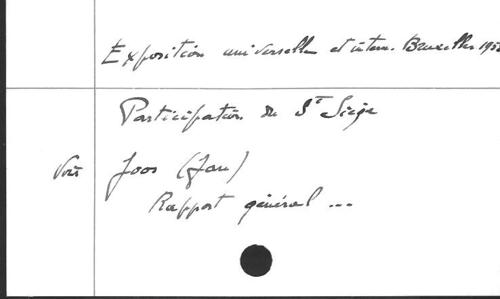 Exposition universelle et intern. Bruxelles 195
Participation du St Siège
Voir Joos (Jan)
Rapport général ...